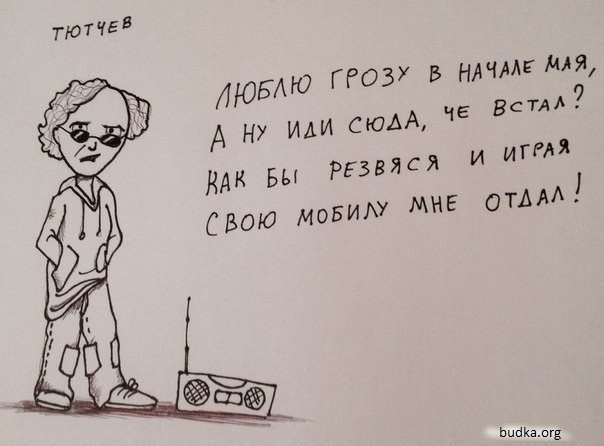 ТЮТЧЕВ
ЛЮБЛЮ ГРОЗУ В НАЧАЛЕ МАЯ,
А НУ ИДИ СЮДА, ЧЕ ВСТАЛ?
КАК БЫ РЕЗВЯСЯ И ИГРАЯ
СВОЮ МОБИЛУ МНЕ ОТДАЛ!
budka.org